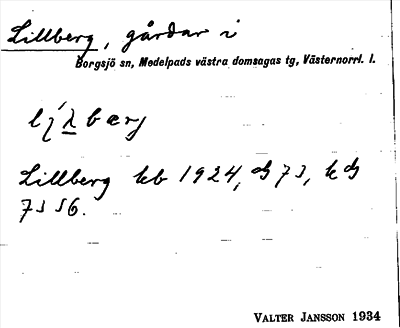 Lillberg, gårdar i
Borgsjö sn, Medelpads västra domsagas tg, Västernorrl. l.
Lillberg kb 1924,
VALTER JANSSON 1934